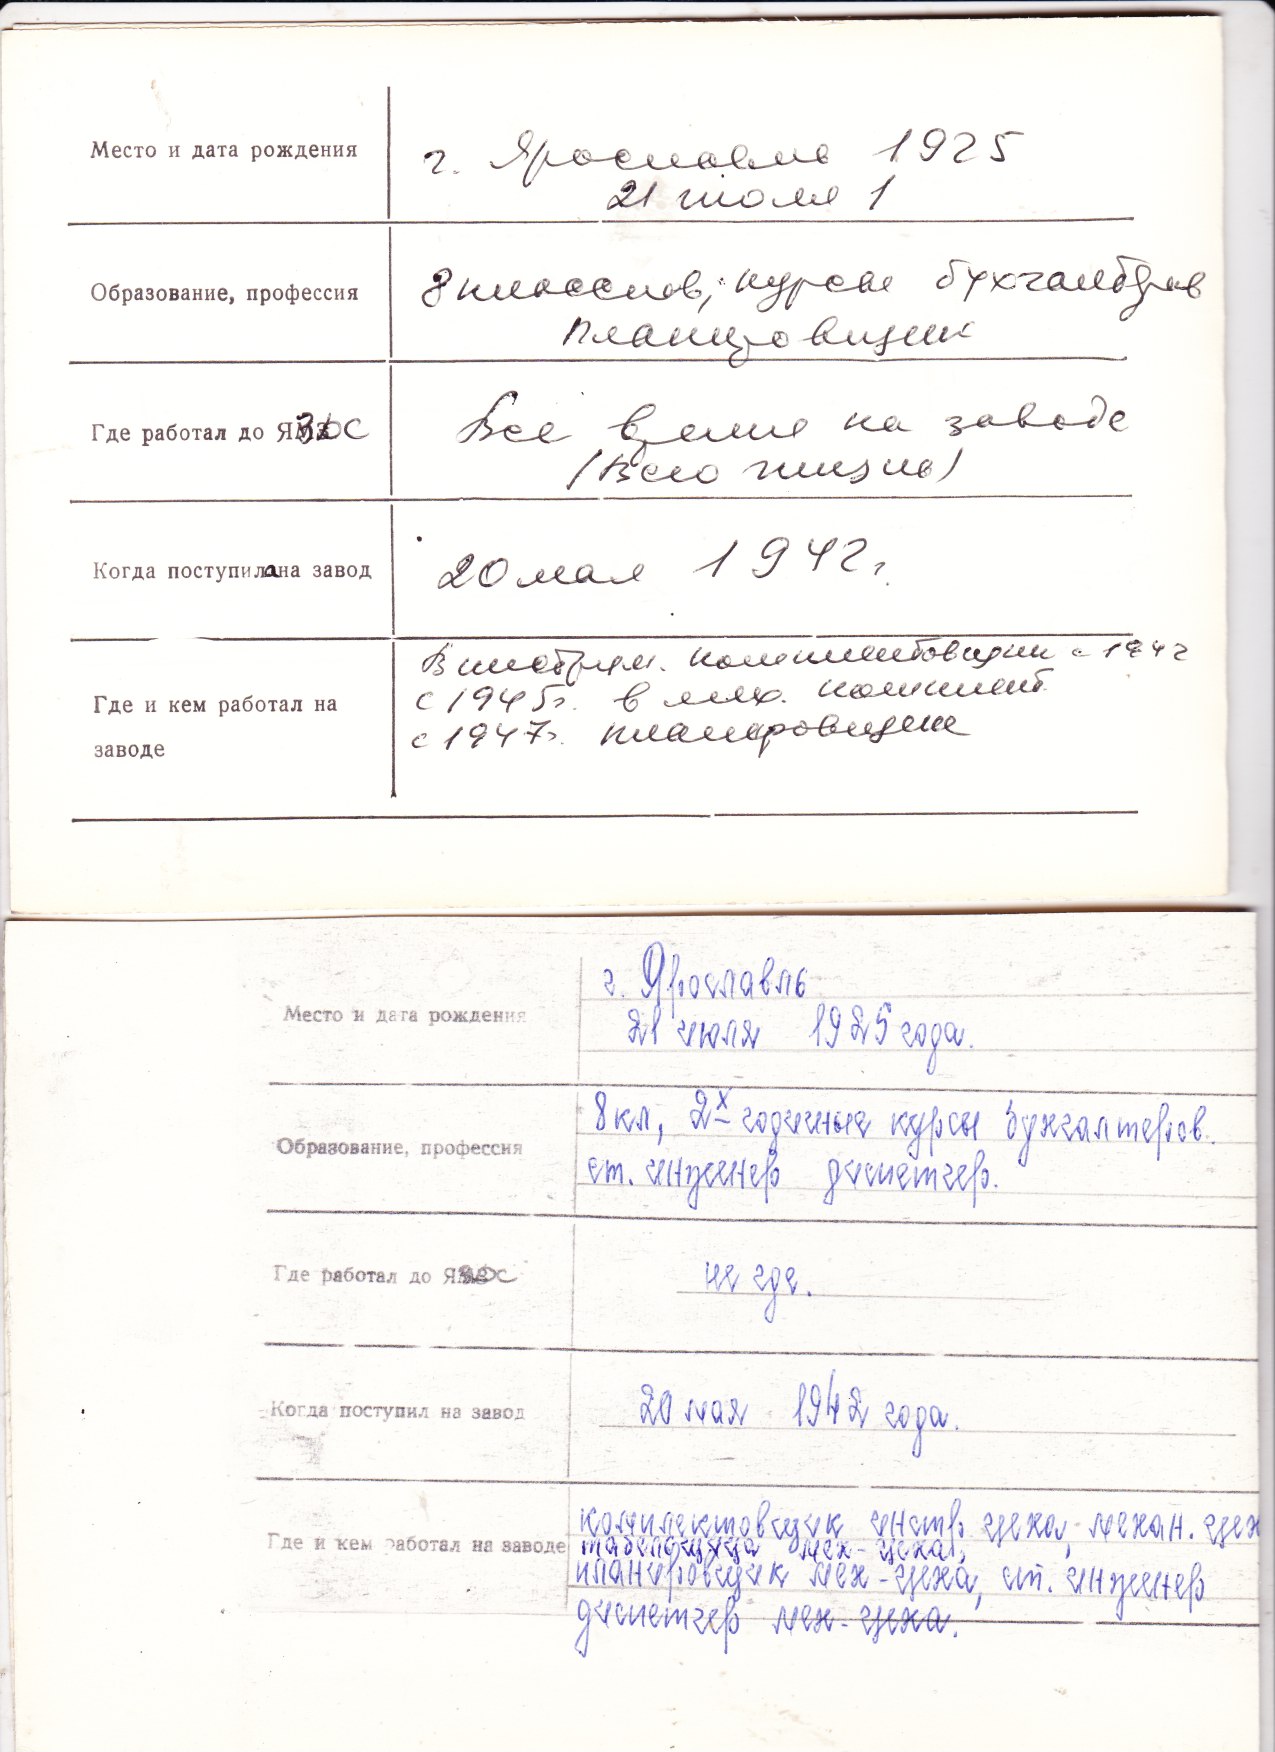 Место и дата рождения
г. Ярославль 1925
21 июля 1
Образование, профессия
8 классов, курсы бухгалтеров
планировщик
Где работал до ЯЗДС
Всё время на заводе
(Всю жизнь)
Когда поступила на завод
20 мая 1942г.
Где и кем работал на
заводе
В инструм. комплектовщик с 1942
с 1945г. в мех. комплект.
с 1947г. планировщик
Место и дата рождения
г. Ярославль
21 июля 1925 года.
Образование, профессия
8 кл, 2х годичные курсы бухгалтеров.
ст. инженер диспетчер.
Где работал до
не где.
Когда поступил на завод
20 мая 1942 года.
Где и кем работал на заводе
комплектовщик инстр. цеха, механ. цех
табельщица мех-цеха,
планировщик мех-цеха, ст. инженер
диспетчер мех-цеха.